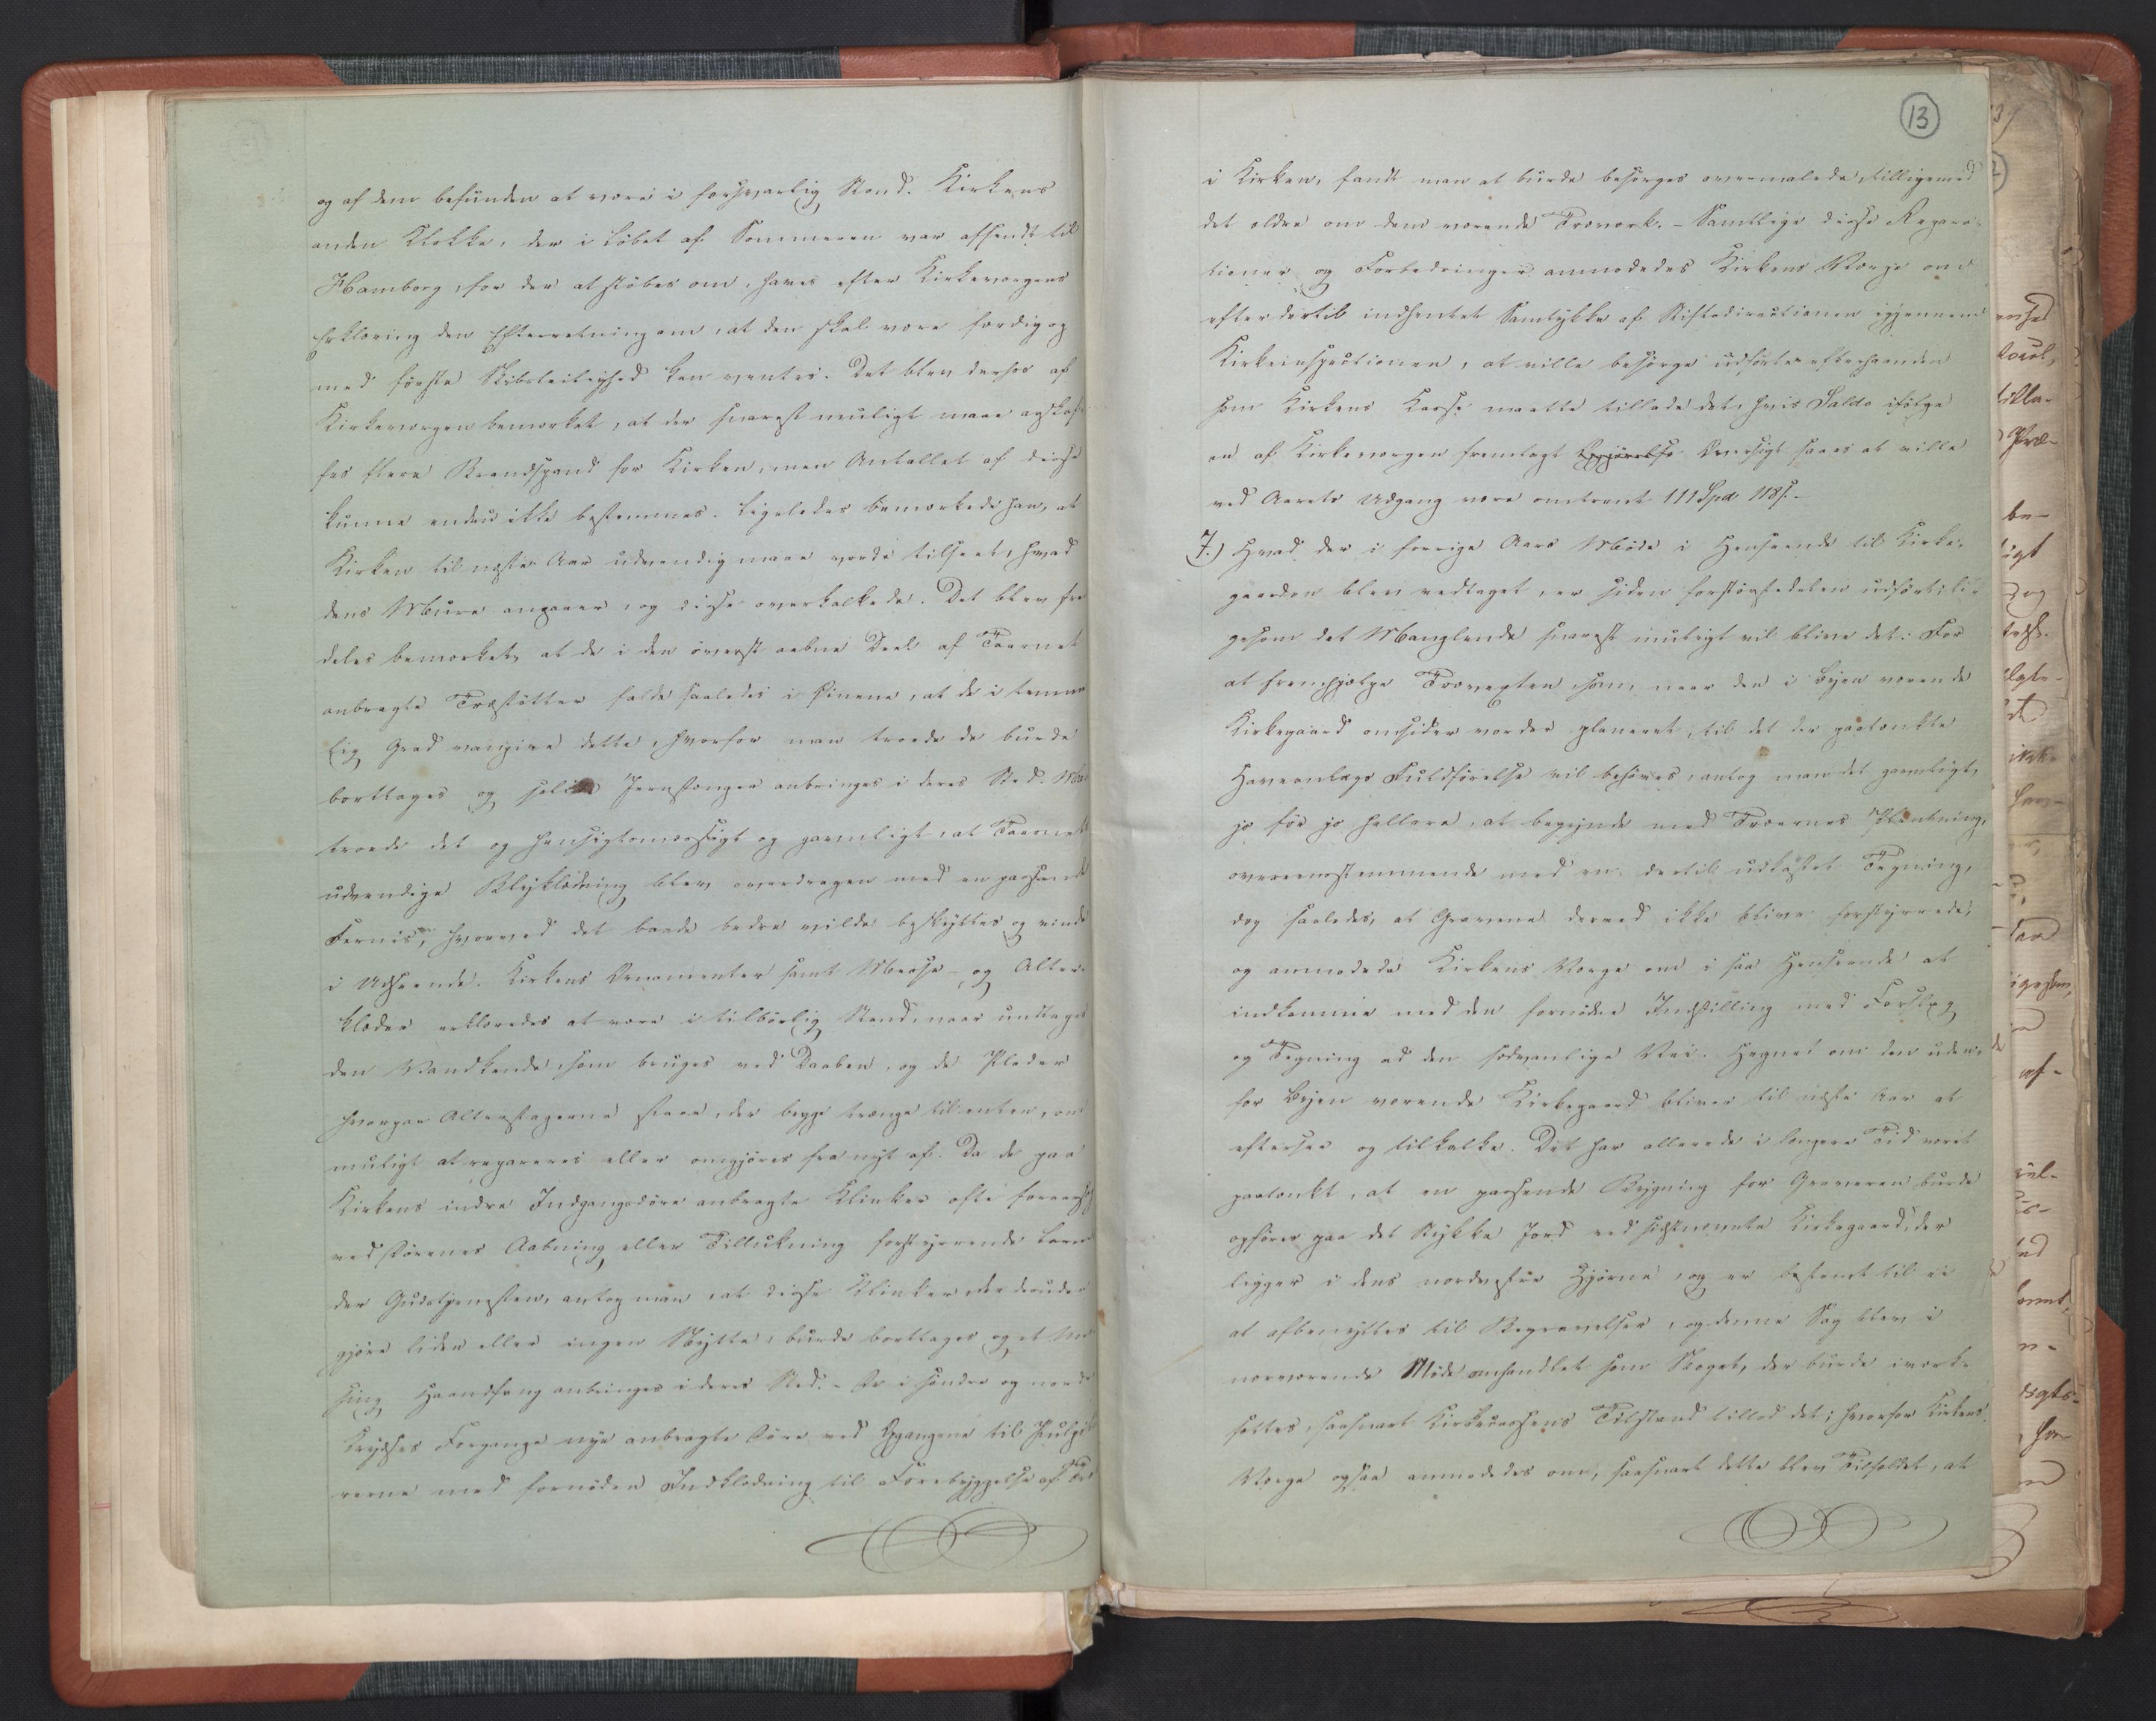 og af dem befunden at være i forsvarlig Stand. Kirkens
anden Klokke, der i Løbet af Sommeren var afsendt til
Hamborg, for der at støbes om, haves efter Kirkeværgens
Erklæring den Efterretning om, at den skal være færdig og
med første Skibsleilighed kan ventes. Det blev derhos af
Kirkeværgen bemærket, at der snarest muligt maae anskaf-
fes flere Brandspand for Kirken, men Antallet af disse
kunne endnu ikke bestemmes. Ligeledes bemærkede han, at
Kirken til næste Aar udvendig maae vorde tilseet, hvad
dens Mure angaaer, og disse overkalkede. Det blev frem
deles bemærket, at de i den øverst aabne Deel af Taarnet
anbragte Træstøtter falde saaledes i Øinene, at de i temme
lig Grad vanzire dette, hvorfor man troede de burde
borttages og Jernstænger anbringes i deres Sted. Man
troede det og hensigtsmæssigt og gavnligt, at Taarnets
udvendige Blyklædning blev overdragen med en passende
Fernis, hvorved det baade bedre vilde beskyttes og vinde
i Udseende. Kirkens Ornamenter samt Messe- og Alter-
klæder erklæredes at være i tilbørlig Stand, naar undtages
den Vandkande, som bruges ved Daaben, og de Plader
hvorpaa Alterstagerne staae, der begge trænge til enten, om
muligt at repareres eller omgjøres fra nyt af. Da de paa
Kirkens indre Indgangsdøre anbragte Klinker ofte foraarsage
ved Dørenes Aabning eller Tillukning forstyrrende Larm
der Gudstjenesten, antog man, at disse Klinker, der desuden
gjøre liden eller ingen Nytte, burde borttages og et Mes
sing Haandfang anbringes i deres Sted. - De i søndre og nordre
Krydses Forgange nye anbragte Døre ved Opgangene til Pulpitu
rerne med fornøden Indklædning til Forebyggelse af Træk
13
i Kirken, fandt man at burde besørges overmalede, tilligemed
det ældre om dem værende Træværk. - Samtlige disse Repara-
tioner og Forbedringer anmodedes Kirkens Værge om
efter dertil indhentet Samtykke af Stiftsdirectionen igjennem
Kirkeinspectionen, at ville besørge udførte efterhaanden
som Kirkens Kasse maatte tillade det, hvis Saldo ifølge
en af Kirkeværgen fremlagt Opgjørelse Oversigt saaes at ville
ved Aarets Udgang være omtrent 111 Spd. 118 s. -
7.) Hvad der i forrige Aars Møde i Henseende til Kirke-
gaarden blev vedtaget, er siden forstørstedelen udført, li-
gesom det Manglende snarest muligt vil blive det: For
at fremhjælpe Trævexten, som, naar den i Byen værende
Kirkegaard omsider vorder planeret, til det der paatænkte
Haveanlægs Fuldførelse vil behøves, antog man det gavnligt,
jo før jo hellere, at begynde med Træernes Plantning,
overensstemmende med en dertil udkastet Tegning,
dog saaledes, at Gravene derved ikke bleve forstyrrede,
og anmodede Kirkens Værge om i saa Henseende at
indkomme med den fornødne Indstilling med Forslag
og Tegning ad den sædvanlige Vei. Hegnet om den uden-
for Byen værende Kirkegaard bliver til næste Aar at
eftersee og tilkalke. Det har allerede i længere Tid været
paatænkt, at en passende Bygning for Graveren burde
opføres paa det Stykke Jord ved sidstnævnte Kirkegaard, der
ligger i dens nordvestre Hjørne, og er bestemt til ei
at afbenyttes til Begravelser, og denne Sag blev i
nærværende Møde omhandlet som Noget, der burde iværk-
sættes, saasnart Kirkecassens Tilstand tillod det; hvorfor Kirkens
Værge ogsaa anmodedes om, saasnart dette blev Tilfældet, at